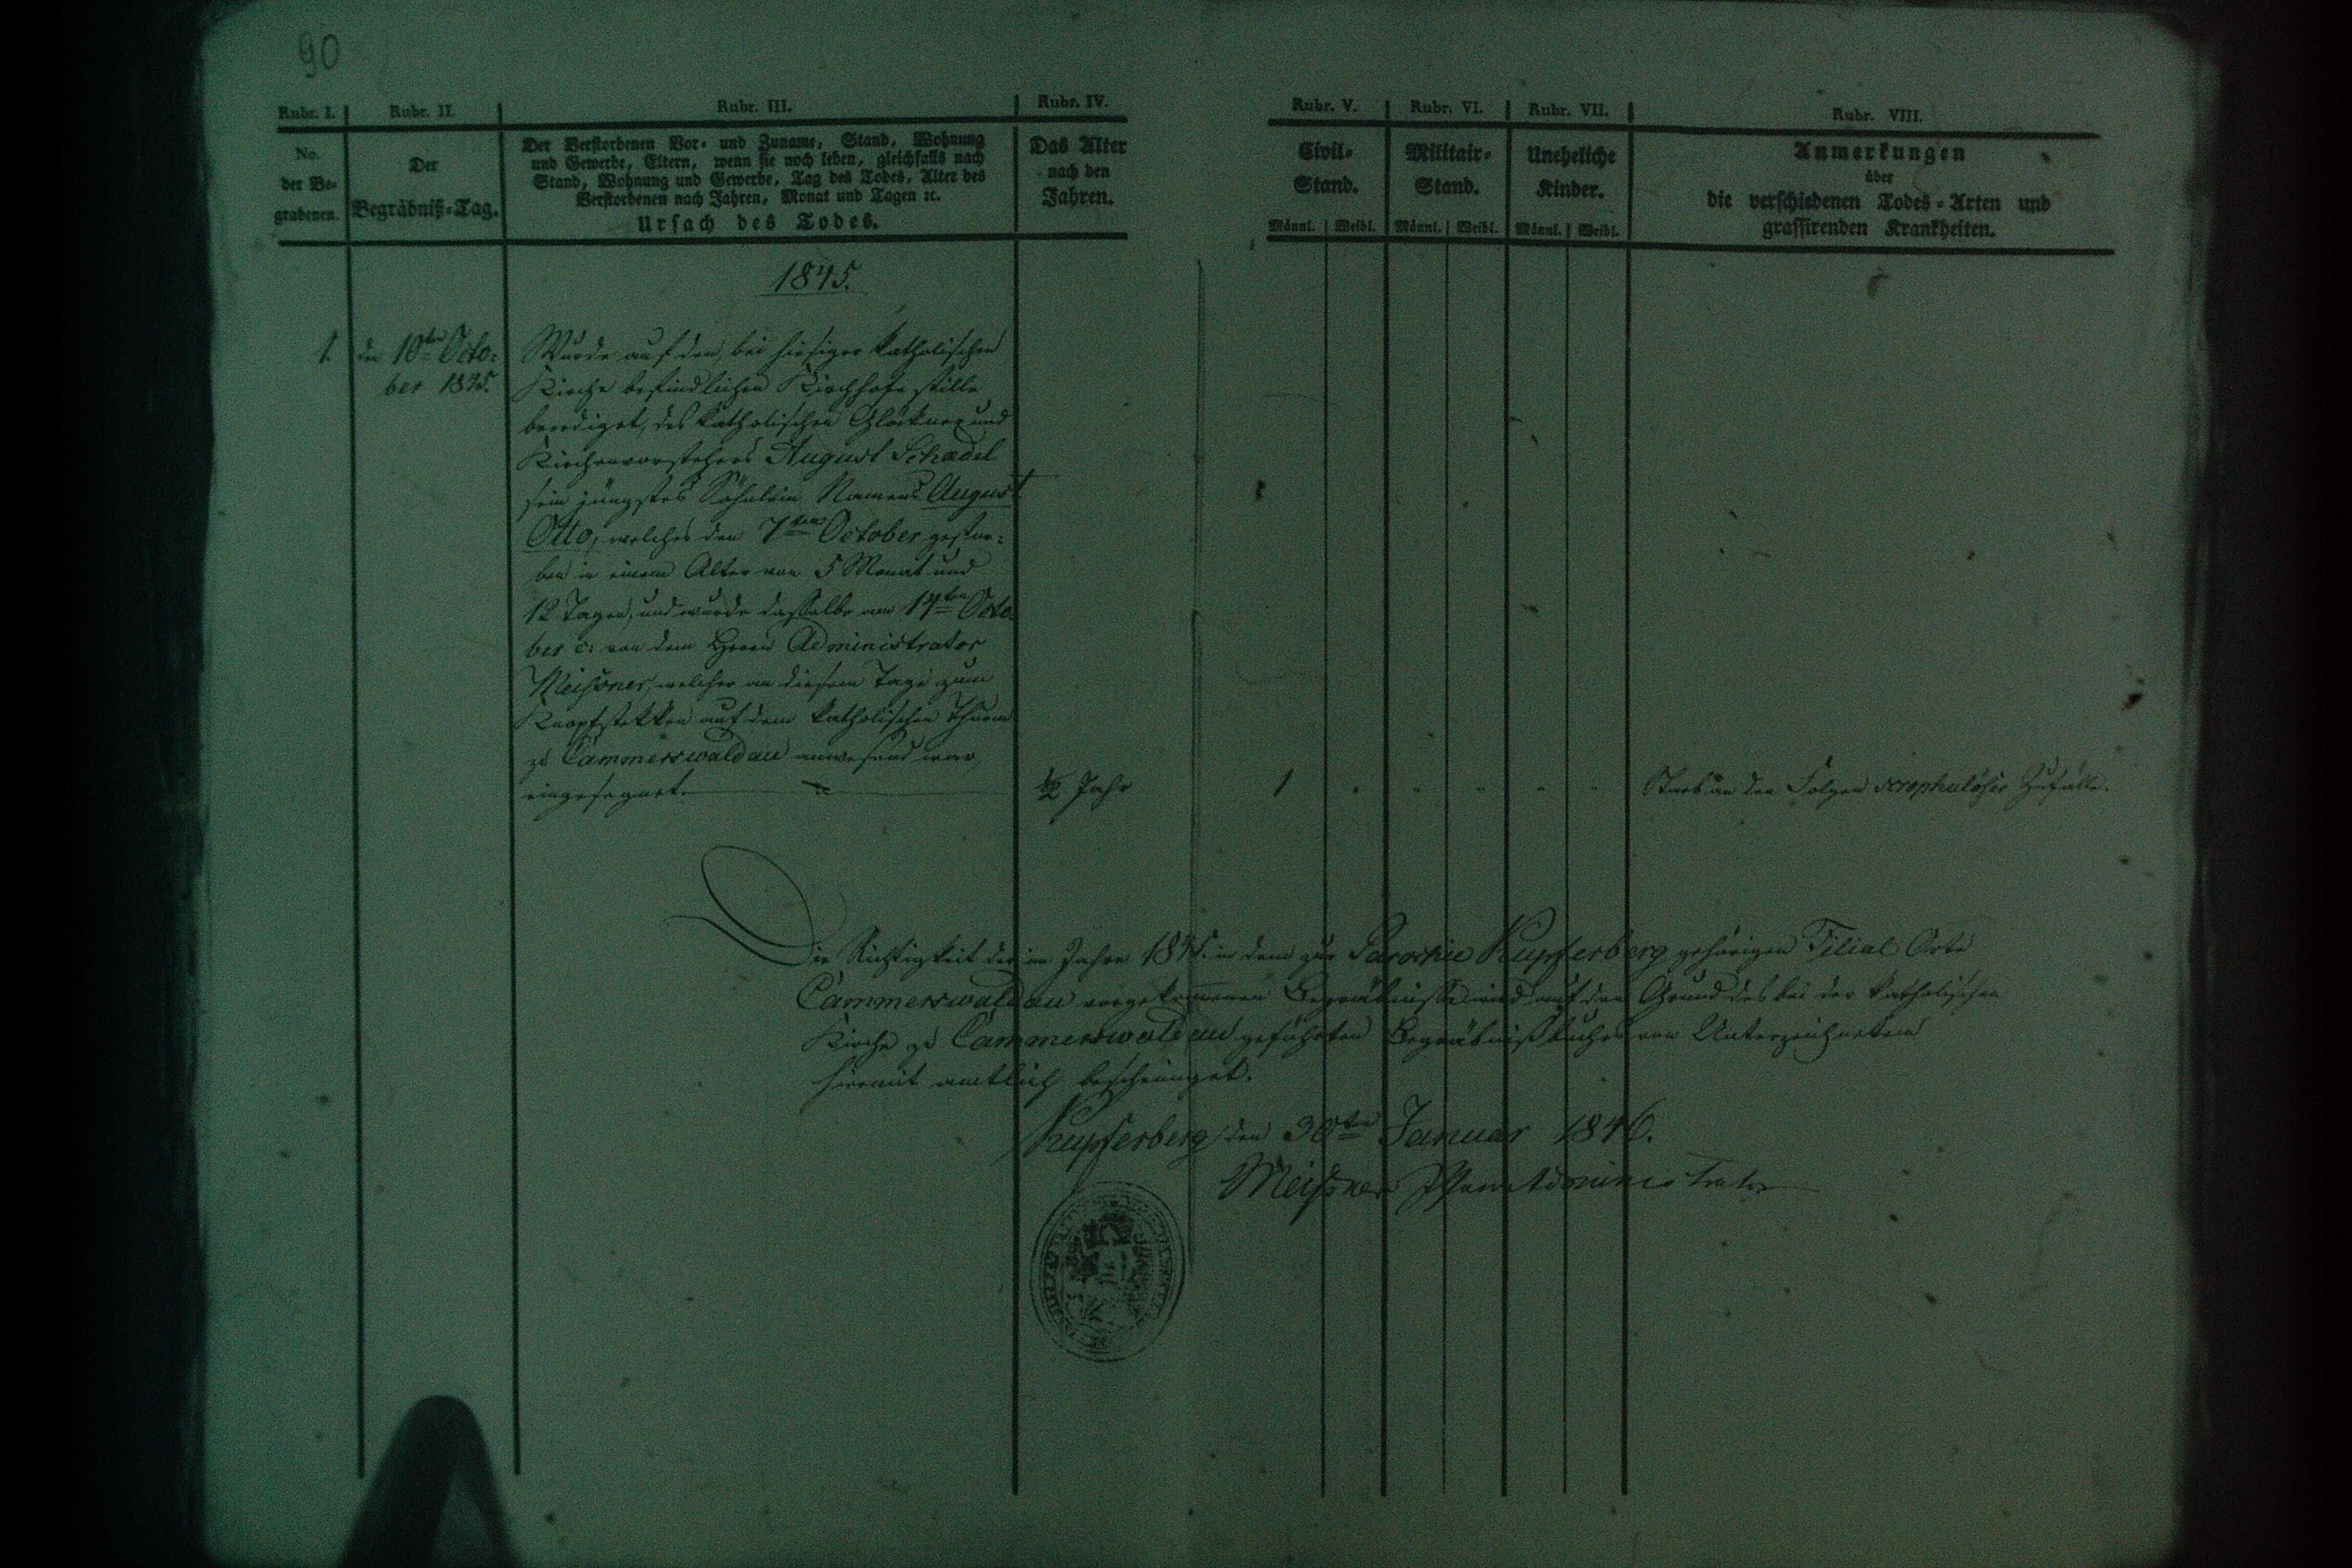 90
Rubr. I. Rubr. II. Rubr. III. Rubr. IV. Rubr. V. Rubr. VI. Rubr. VII. Rubr. VIII.
No.
der Be-
grabenen.
Der
Begräbniß-Tag.
Der Verstorbenen Vor- und Zuname, Stand, Wohnung
und Gewerbe, Eltern, wenn sie noch leben, gleichfalls nach
Stand, Wohnung und Gewerbe, Tag des Todes, Alter des
Verstorbenen nach Jahren, Monat und Tagen ꝛc.
Ursach des Todes.
Das Alter
nach den
Jahren.
Civil-
Stand.
Männl. Weibl.
Militair-
Stand.
Männl. Weibl.
Uneheliche
Kinder.
Männl. Weibl.
Anmerkungen
über
die verschiedenen Todes-Arten und
grassirenden Krankheiten.
1845.
1. den 10ten Octo-
ber 1845.
Wurde auf den, bei hiesiger katholischen
Kirche befindlichen Kirchhofe stille
beerdiget, des katholischen Glöckner und
Kirchenvorstehers August Schadel
sein jüngstes Söhnlein Namens August
Otto, welches den 7ten October gestor-
ben in einem Alter von 5 Monat und
12 Tagen, und wurde dasselbe am 14ten Octo-
ber c: von dem Herrn Administrator
Meißner, welcher an diesem Tage zum
Knopfstekken auf dem katholischen Thurm
zu Cammerswaldau anwesend war,
eingesegnet.
1/2 Jahr
1 " " " " "
Starb an den Folgen scrophulöser Zufälle.
Die Richtigkeit der im Jahre 1845. in dem zur Parochie Kupferberg gehörigen Filial Orte
Cammerswaldau vorgekommenen Begräbnisse wird auf den Grund des bei der katholischen
Kirche zu Cammerswaldau geführten Begräbnißbuches von Unterzeichnetem
hiermit amtlich bescheiniget.
Kupferberg, den 30ten Januar 1846.
Meißner Pfarradministrator